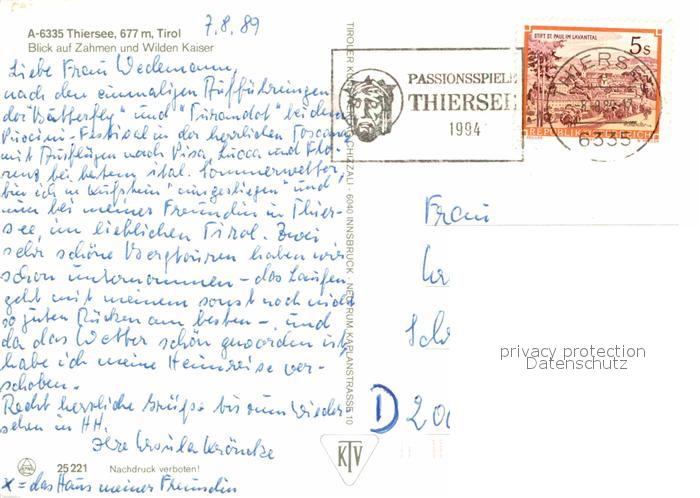 7.8.89
A-6335 Thiersee, 677 m, Tirol
Blick auf Zahmen und Wilden Kaiser
Liebe Frau Wedemann,
nach den einmaligen Aufführungen
der "Butterfly" und "Turandot" bei dem
Puccini-Festival in der herrlichen Toscana
mit Ausflügen nach Pisa, Lucca und Flo-
renz bei bestem ital. Sommerwetter,
bin ich in Kufstein "ausgestiegen" und
nun bei meiner Freundin in Thier-
see, im lieblichen Tirol. Zwei
sehr schöne Bergtouren haben wir
schon unternommen - das Laufen
geht mit meinem sonst noch nicht
so guten Rücken am besten -, und
da das Wetter schön geworden ist,
habe ich meine Heimreise ver-
schoben.
Recht herzliche Grüße bis zum Wieder-
sehen in HH.
Ihre Ursula
25 221 Nachdruck verboten!
x = das Haus meiner Freundin
6040 INNSBRUCK
KTV
PASSIONSSPIELE
THIERSEE
1994
STIFT ST. PAUL IM LAVANTTAL
5 S
REPUBLIK ÖSTERREICH
THIERSEE
6335
Frau
D 20
privacy protection
Datenschutz